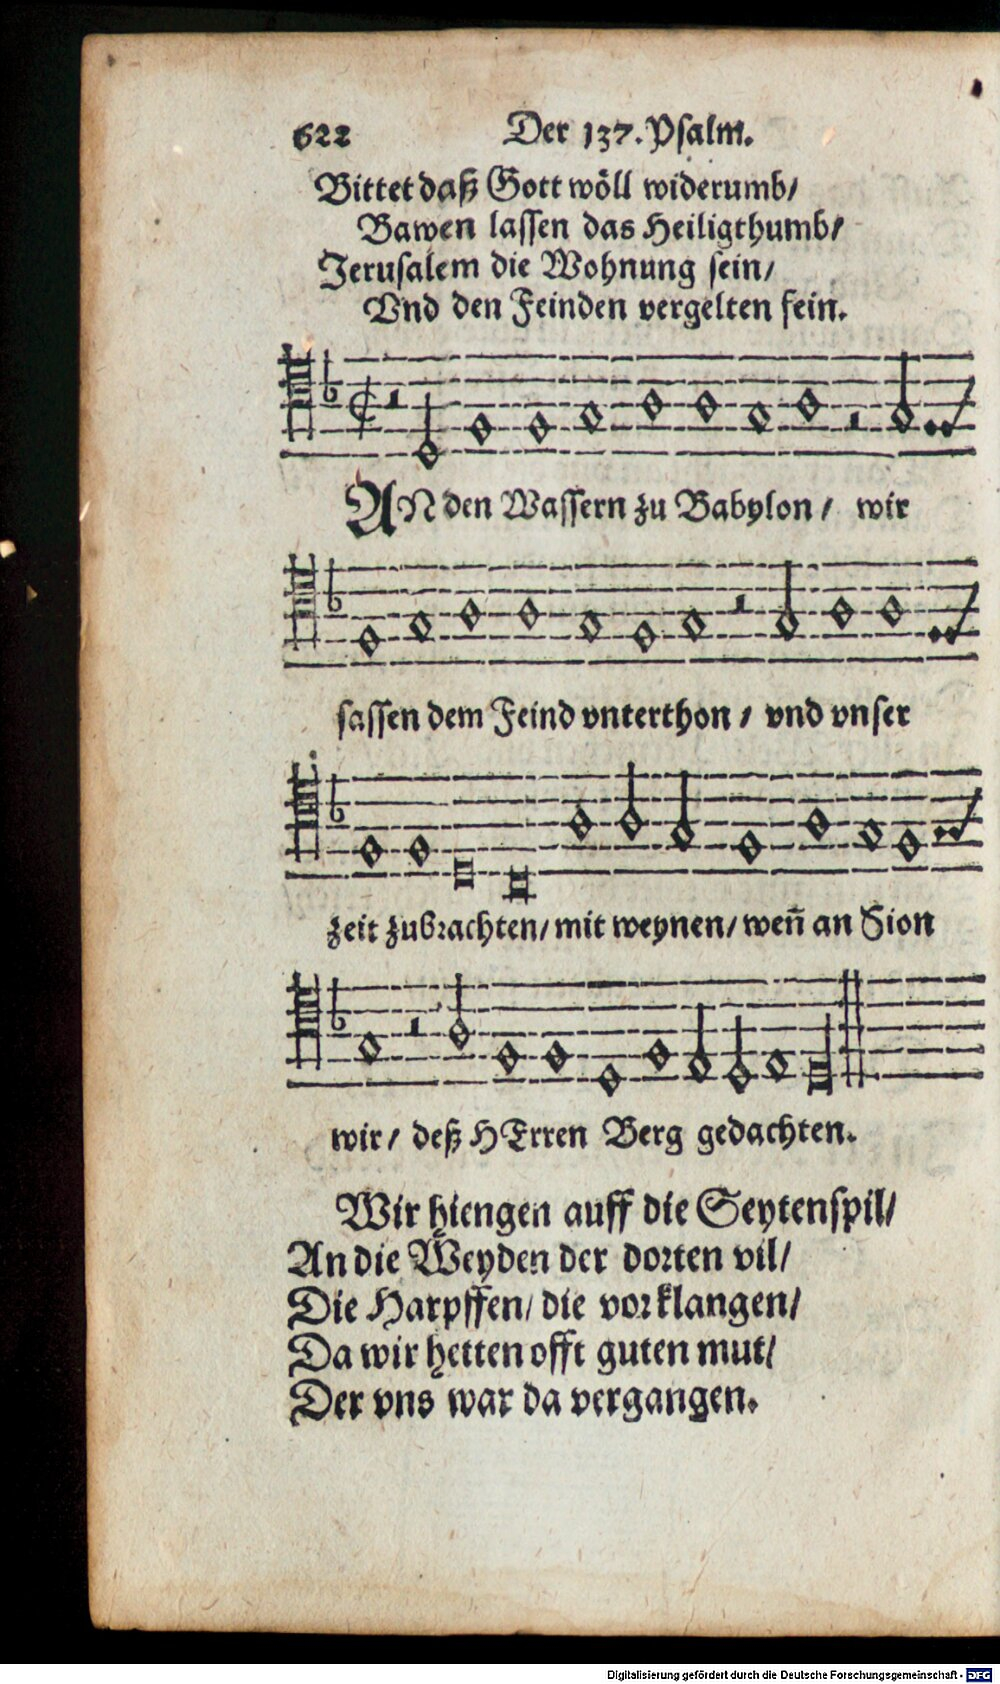 622 Der 137. Psalm.
Bittet daß Gott wöll widerumb/
Bawen lassen das Heiligthumb/
Jerusalem die Wohnung sein/
Vnd den Feinden vergelten fein.
AN den Wassern zu Babylon / wir
sassen dem Feind vnterthon / vnd vnser
zeit zubrachten/ mit weynen/ weñ an Sion
wir/ deß HErren Berg gedachten.
Wir hiengen auff die Seytenspil/
An die Weyden der dorten vil/
Die Harpffen/ die vor klangen/
Da wir hetten offt guten mut/
Der vns war da vergangen.
Digitalisierung gefördert durch die Deutsche Forschungsgemeinschaft - DFG